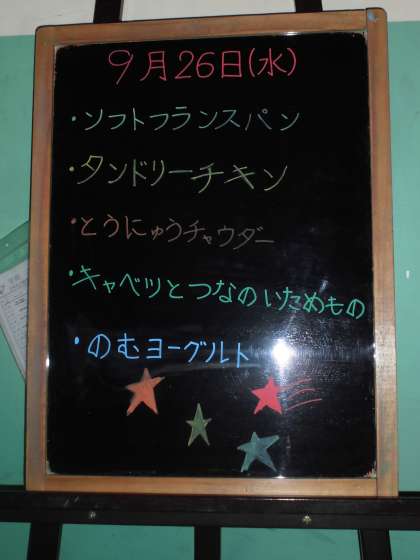 9月26日(水)
・ソフトフランスパン
・タンドリーチキン
・とうにゅうチャウダー
・キャベツとつなのいためもの
・のむヨーグルト